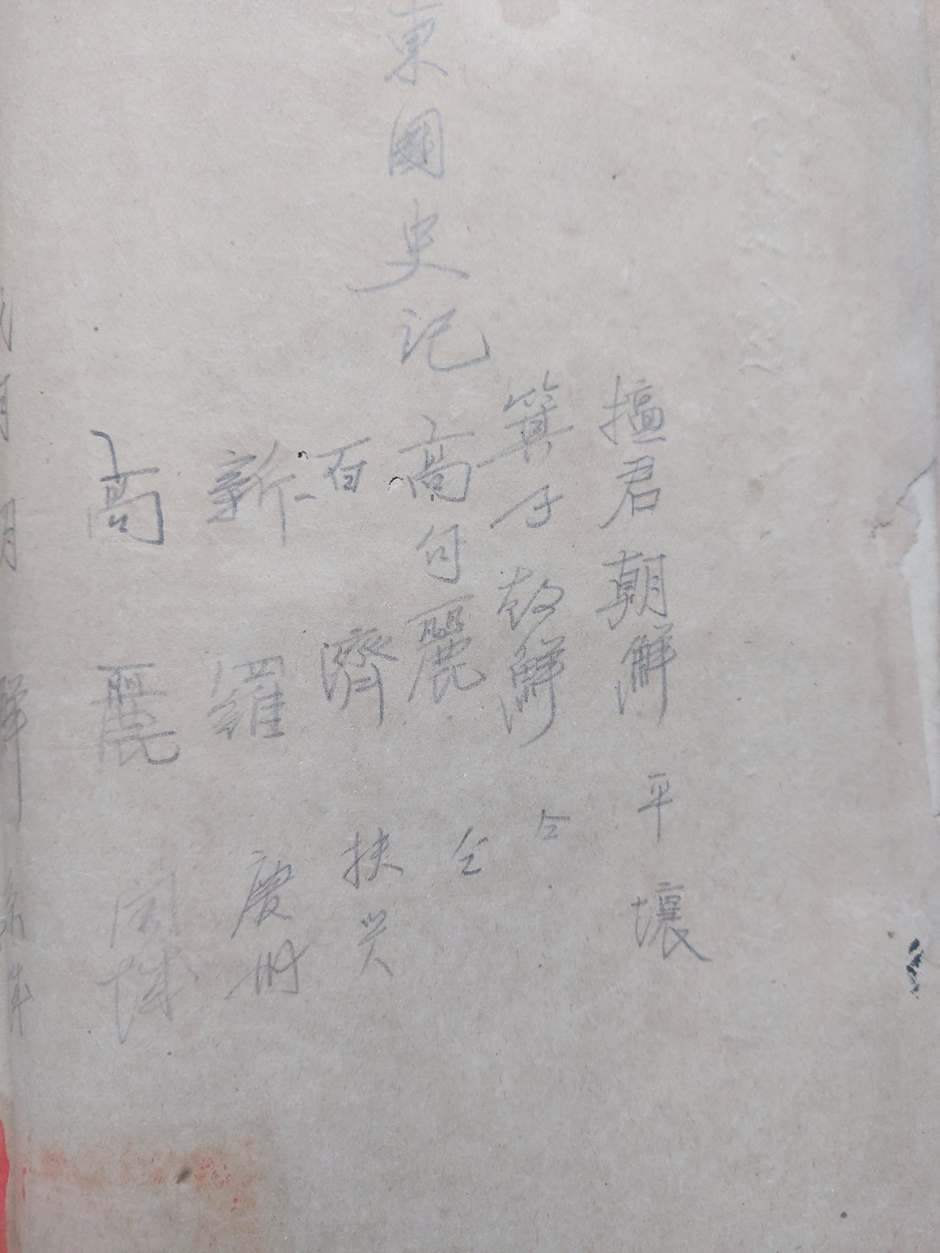 東國史記
檀君朝鮮 平壤
箕子朝鮮 仝
高句麗 仝
百濟 扶餘
新羅 慶州
高麗 開城